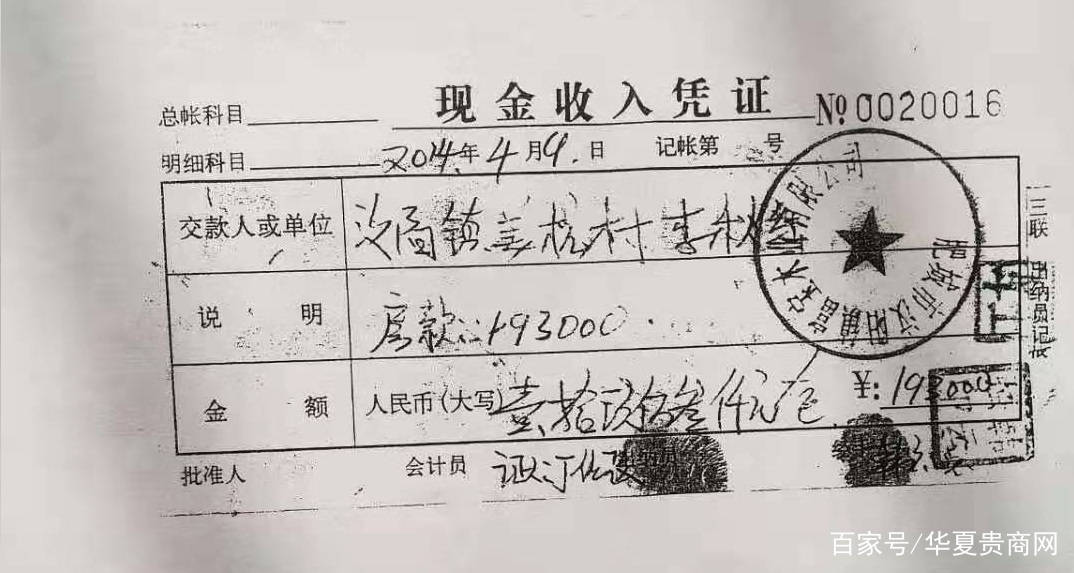 现金收入凭证
总帐科目 №0020016
明细科目 2014年4月9日 记帐第 号
交款人或单位 汶阳镇姜杭村李秋
肥城市汶阳镇富安木业有限公司
三联
说 明 房款:193000
金 额 人民币(大写)壹拾玖万叁仟元 ¥:193000
批准人 会计员 证
百家号/华夏贵商网